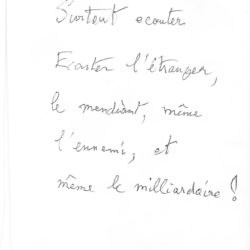 Surtout ecouter
Ecouter l'étranger,
le mendiant, même
l'ennemi, et
même le milliardaire !